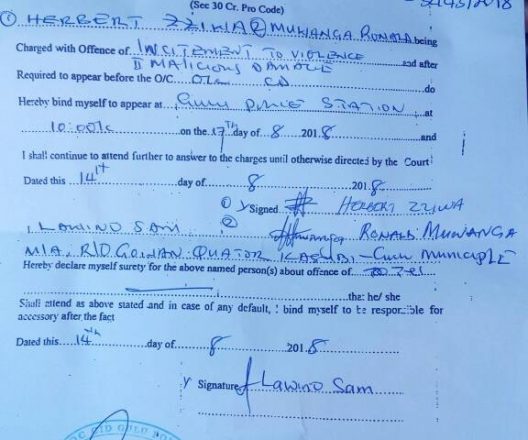 (See 30 Cr. Pro Code)
① HERBERT ZZIWA ② MUWANGA RONALD being
Charged with Offence of INCITEMENT TO VIOLENCE
II MALICIOUS DAMAGE and after
Required to appear before the O/C CID do
Hereby bind myself to appear at GULU POLICE STATION at
10:00 on the 17th day of 8 2018 and
I shall continue to attend further to answer to the charges until otherwise directed by the Court
Dated this 14th day of 8 2018
① y Signed HERBERT ZZIWA
② RONALD MUWANGA
I, LAWINO SAM
M/A, R/O GOLDAN QUATOR KASUBI - GULU MUNICIPLE
Hereby declare myself surety for the above named person(s) about offence of
that he/ she
Shall attend as above stated and in case of any default, I bind myself to be responsible for
accessory after the fact
Dated this 14th day of 8 2018
y Signature Lawino Sam